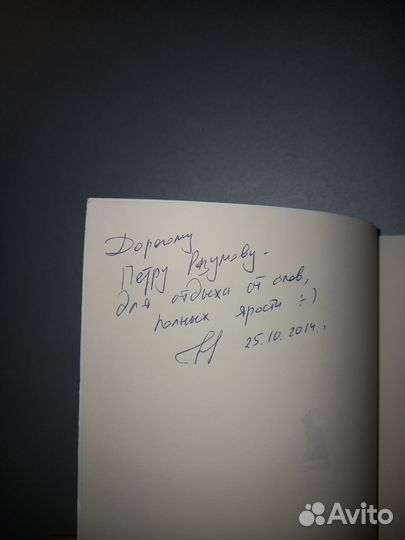 Дорогому
Петру Разумову -
для отдыха от слов,
полных ярости :-)
25.10.2014г.
Avito